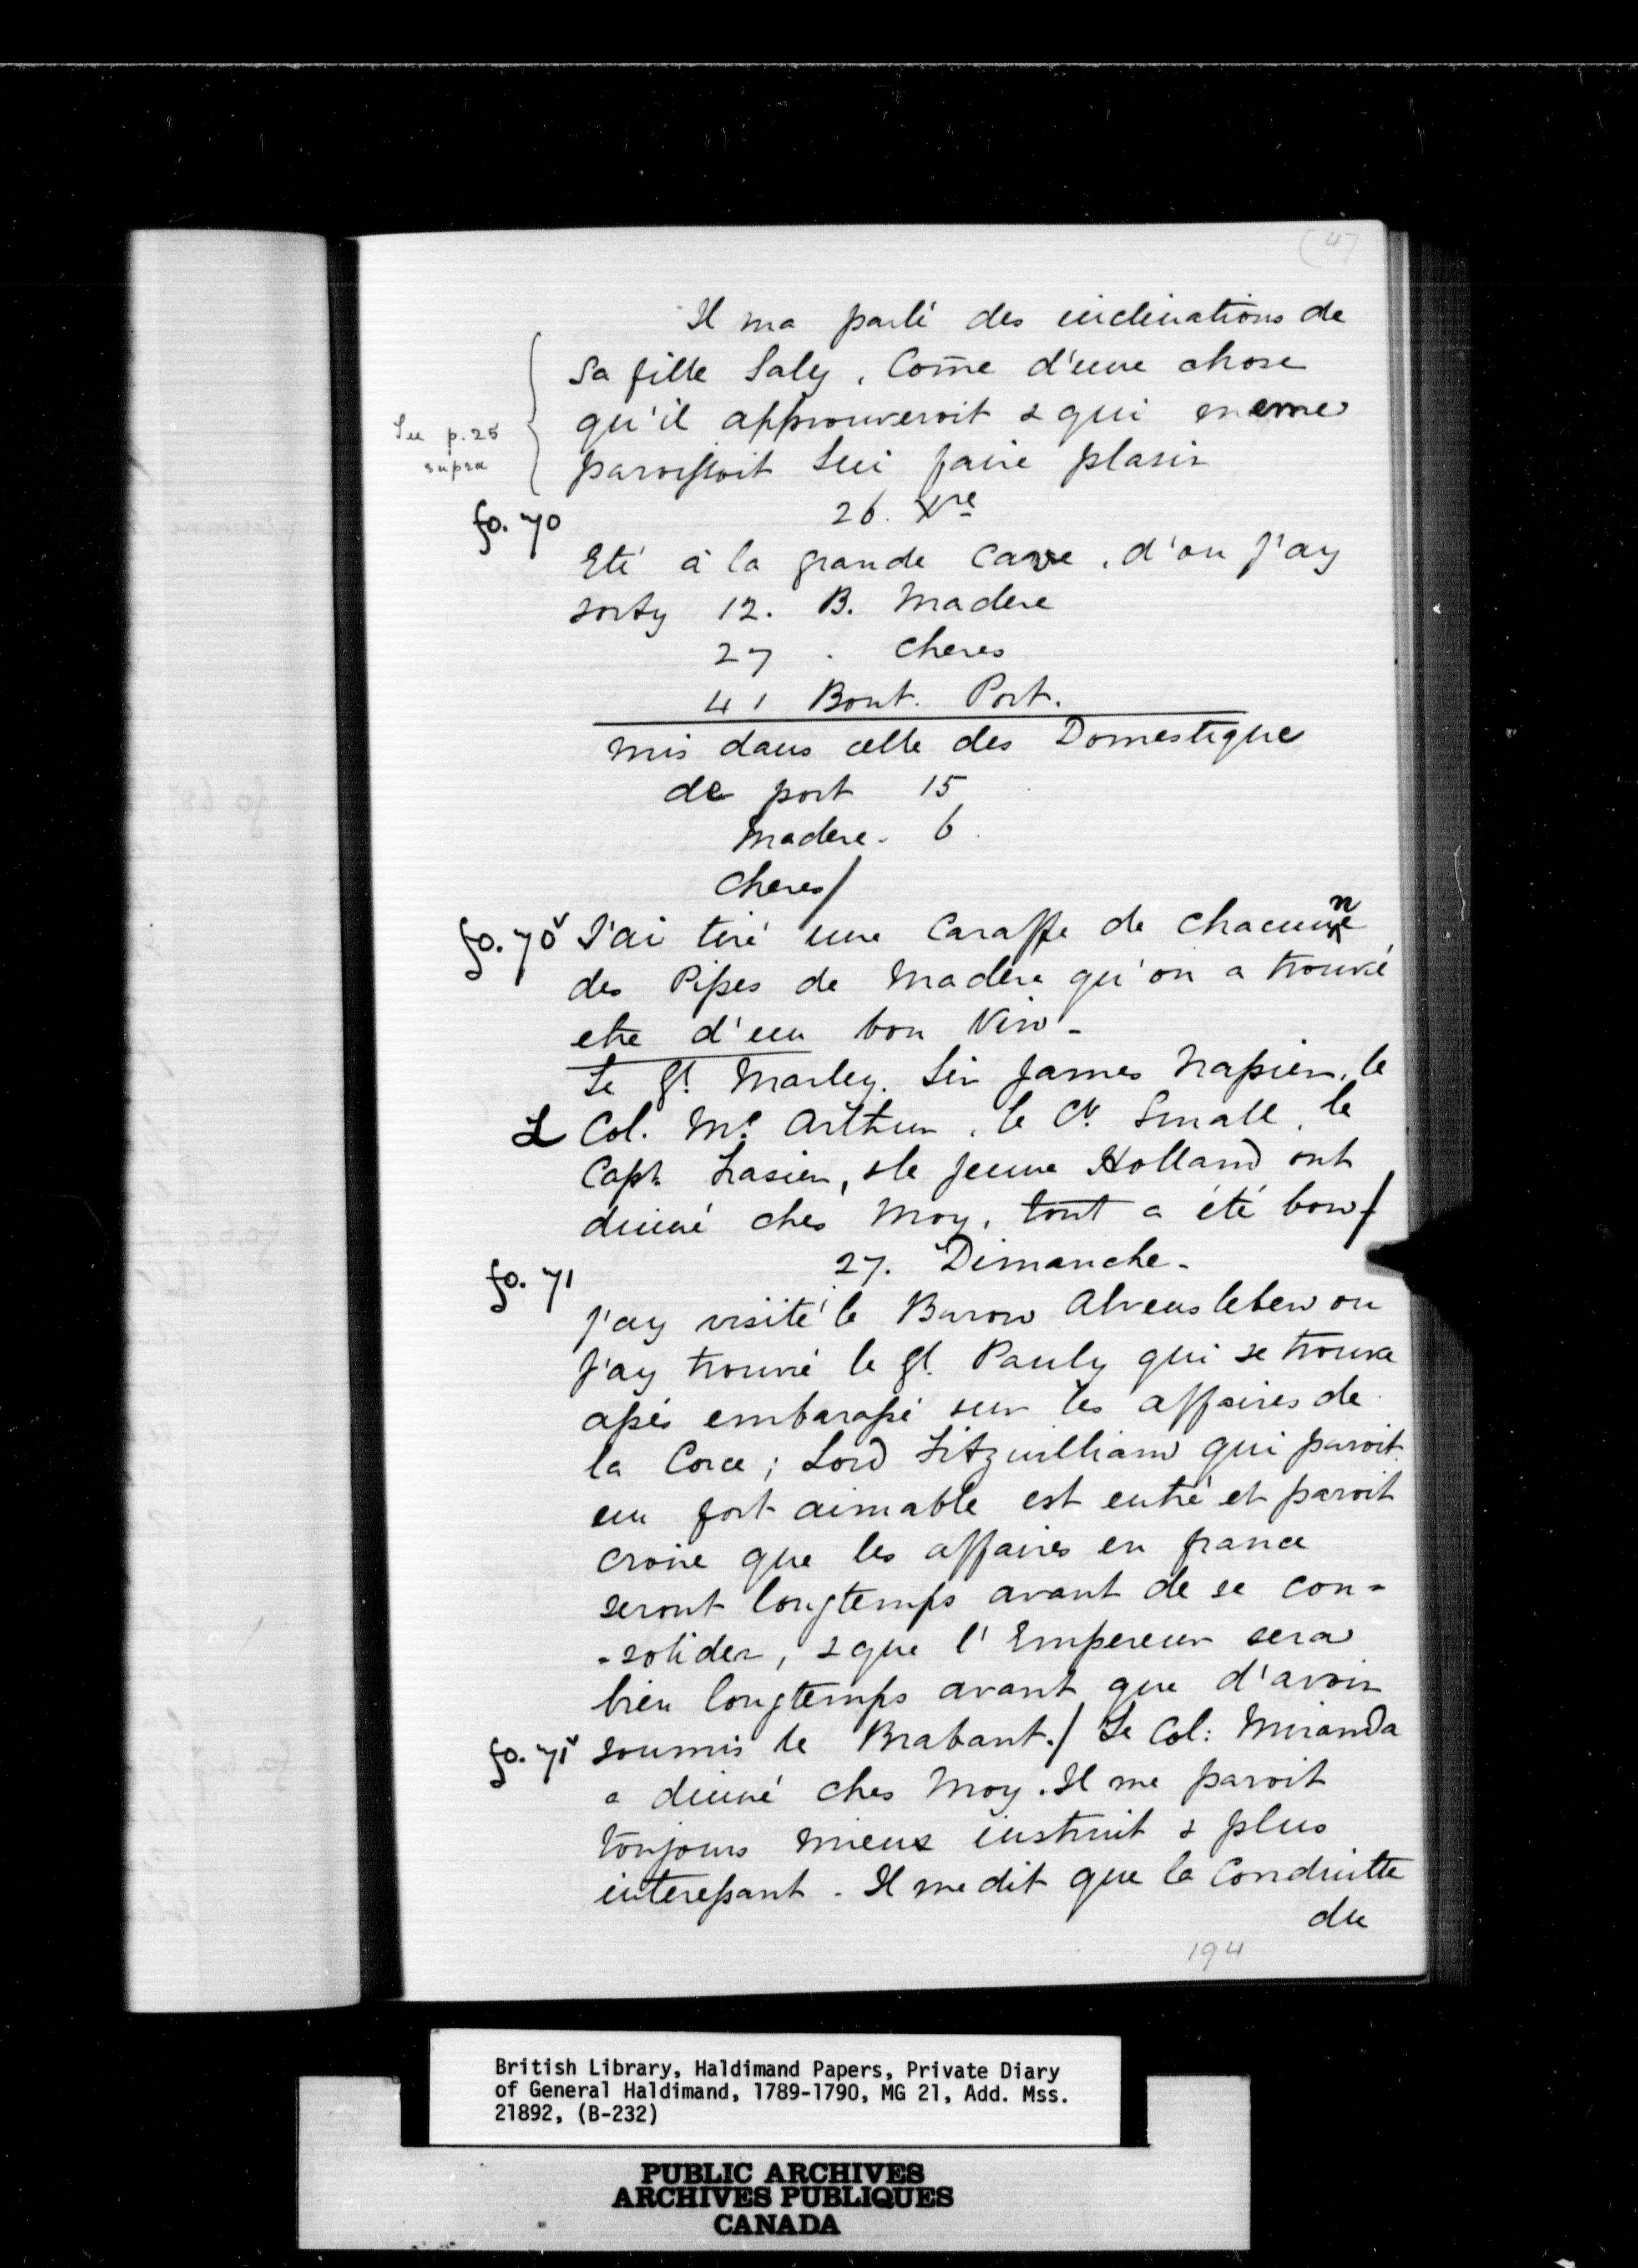 (47
Il ma parlé des inclinations de
Sa fille Saly, Com̄e d'une chose
qu'il approuveroit & qui meme
See p. 25
supra
paroissoit lui faire plasir
fo. 70
26. Xre
Eté à la grande Cave, d'ou j'ay
sorty 12. B. Madere
27 . Cheres
41 Bout. Port.
Mis dans celle des Domestique
de port 15
Madere - 6.
Cheres/
fo. 70v J'ai tiré une Caraffe de chacune
n
des Pipes de Madere qu'on a trouvé
etre d'un bon Vin -
Le Gl. Marley. Sir James Napier, le
L Col. Mc. Arthur, le Cr. Small, le
Capt. Frasier, & le jeune Holland ont
dinné ches Moy, tout a été bon/
27. Dimanche -
fo. 71
J'ay visité le Baron Alvensleben ou
j'ay trouvé le gl. Pauly qui se trouve
assés embarassé sur les affaires de
la Corce; Lord Fitzwilliam qui paroit
un fort aimable est entré et paroit
croire que les affaires en france
seront longtemps avant de se con=
=solider, & que l'Empereur sera
bien longtemps avant que d'avoir
fo. 71v soumis le Brabant./ Le Col: Miranda
a dinné ches Moy. Il me paroit
toujours mieux instruit & plus
interessant. Il me dit que la Conduitte
du
194
British Library, Haldimand Papers, Private Diary
of General Haldimand, 1789-1790, MG 21, Add. Mss.
21892, (B-232)
PUBLIC ARCHIVES
ARCHIVES PUBLIQUES
CANADA